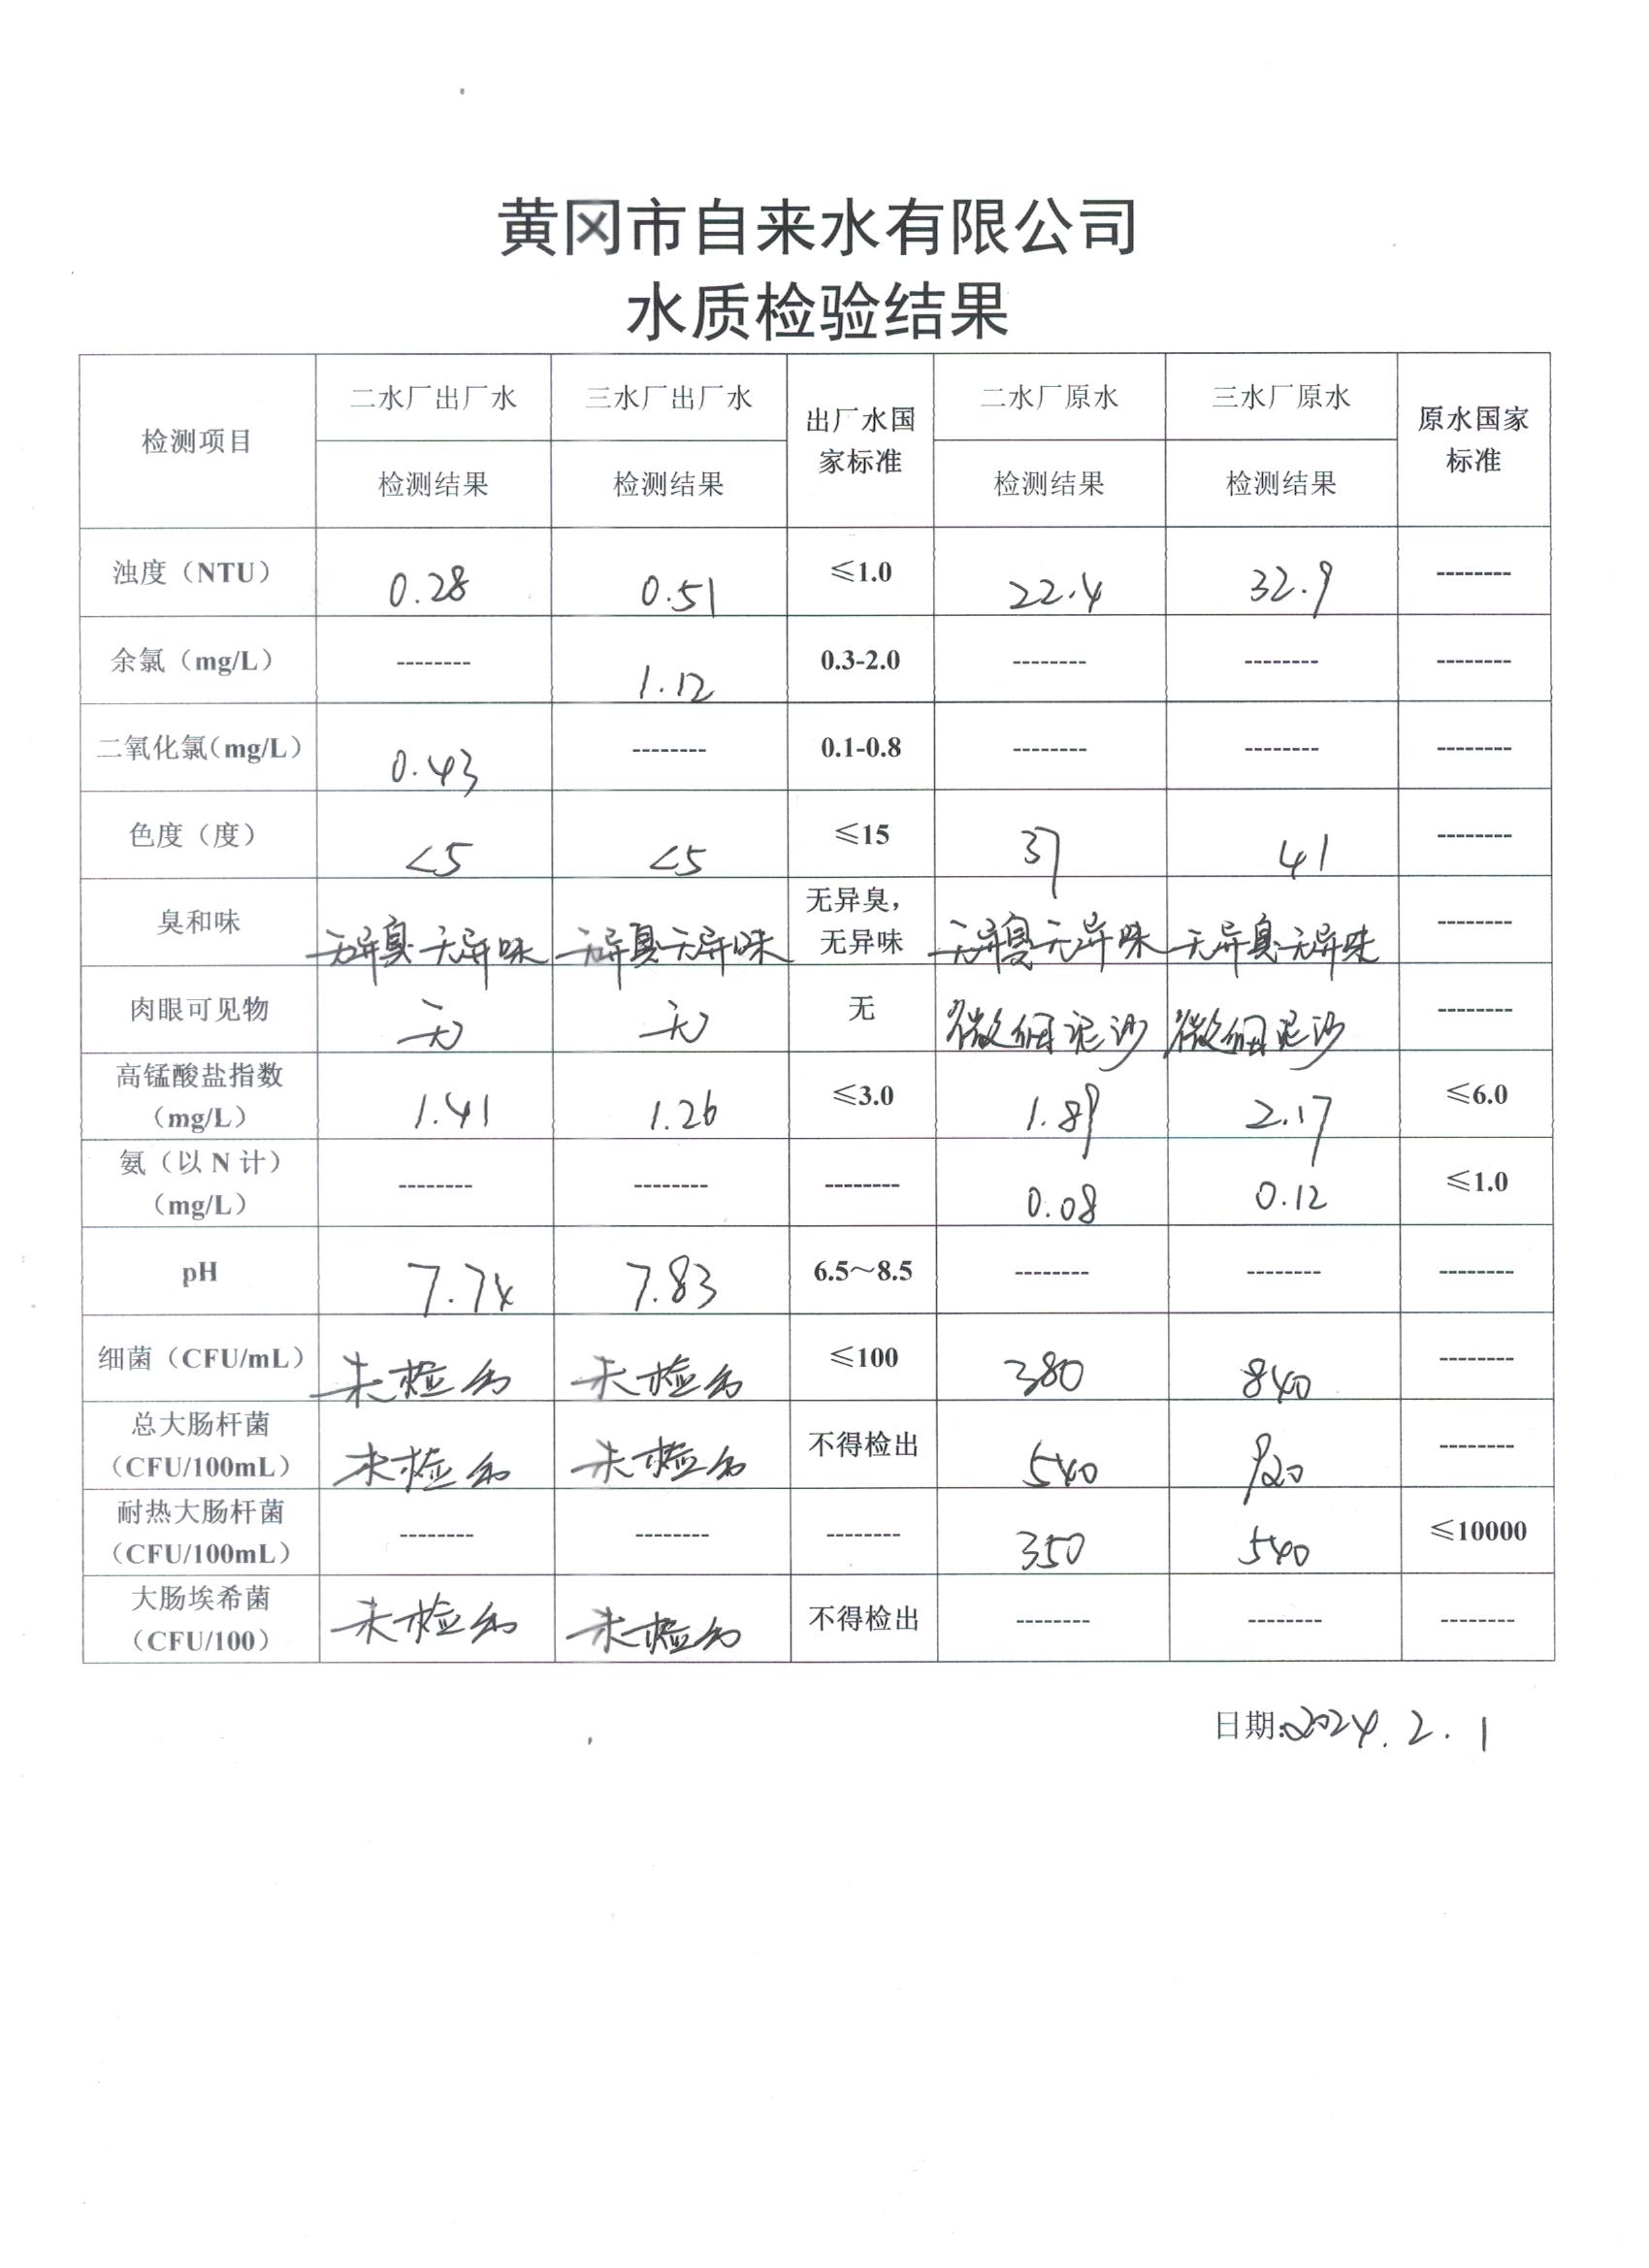 黄冈市自来水有限公司
水质检验结果
检测项目 二水厂出厂水 三水厂出厂水 出厂水国家标准 二水厂原水 三水厂原水 原水国家标准
检测结果 检测结果 检测结果 检测结果
浊度（NTU） 0.28 0.51 ≤1.0 22.4 32.9 --------
余氯（mg/L） -------- 1.12 0.3-2.0 -------- -------- --------
二氧化氯（mg/L） 0.43 -------- 0.1-0.8 -------- -------- --------
色度（度） <5 <5 ≤15 37 41 --------
臭和味 无异臭.无异味 无异臭.无异味 无异臭，无异味 无异臭无异味 无异臭.无异味 --------
肉眼可见物 无 无 无 微细泥沙 微细泥沙 --------
高锰酸盐指数（mg/L） 1.41 1.26 ≤3.0 1.89 2.17 ≤6.0
氨（以 N 计）（mg/L） -------- -------- -------- 0.08 0.12 ≤1.0
pH 7.74 7.83 6.5～8.5 -------- -------- --------
细菌（CFU/mL） 未检出 未检出 ≤100 380 840 --------
总大肠杆菌（CFU/100mL） 未检出 未检出 不得检出 540 920 --------
耐热大肠杆菌（CFU/100mL） -------- -------- -------- 350 540 ≤10000
大肠埃希菌（CFU/100） 未检出 未检出 不得检出 -------- -------- --------
日期:2024.2.1